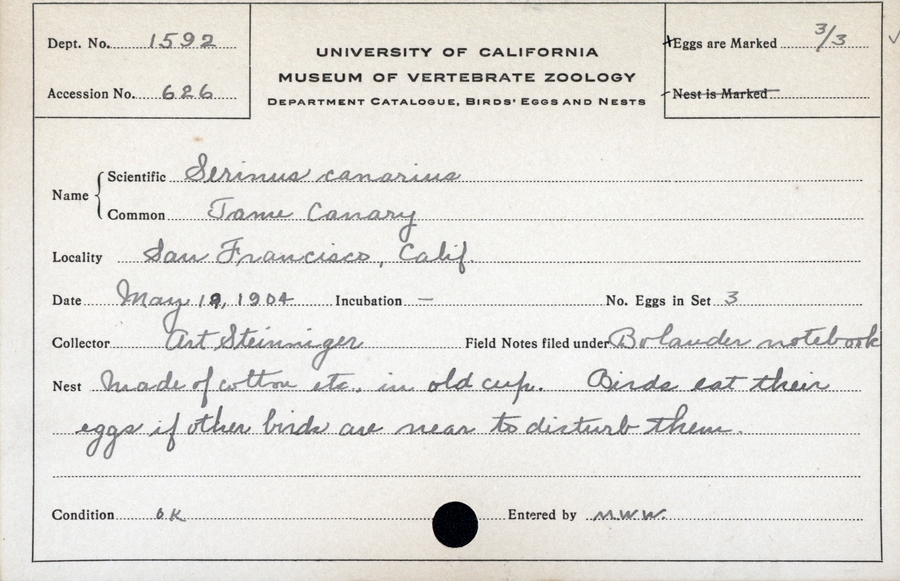 Dept. No. 1592
Accession No. 626
UNIVERSITY OF CALIFORNIA
MUSEUM OF VERTEBRATE ZOOLOGY
DEPARTMENT CATALOGUE, BIRDS' EGGS AND NESTS
Eggs are Marked 3/3
Nest is Marked
Name { Scientific Serinus canarius
Common Tame Canary
Locality San Francisco, Calif.
Date May 19, 1904 Incubation — No. Eggs in Set 3
Collector Art Steinniger Field Notes filed under Bolander notebook
Nest Made of cotton etc. in old cup. Birds eat their
eggs if other birds are near to disturb them.
Condition OK Entered by MWW.